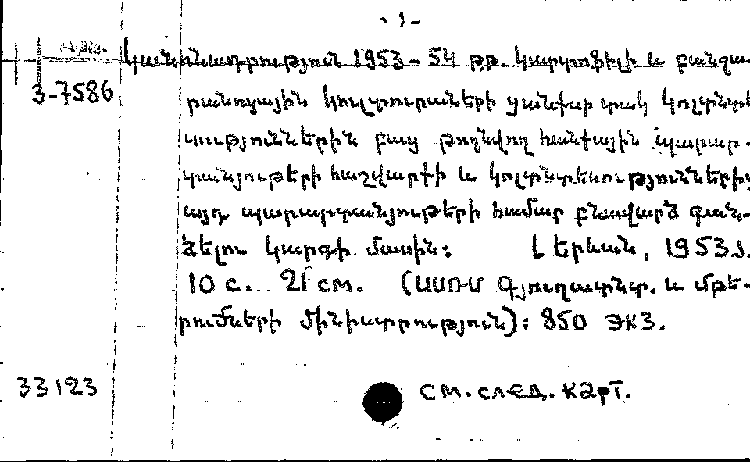 - 1 -
Կանոնադրություն 1953-54 թթ. կարտոֆիլի և բանջա-
3-7586
րանոցային կուլտուրաների ցանքսի տակ կոլտնտե-
սություններին բաց թողնվող հանքային պարար-
տանյութերի հաշվարքի և կոլտնտեսություններից
այդ պարարտանյութերի համար բնավարձ գան-
ձելու կարգի մասին: Երևան, 1953 թ.
10 с. 21 см. (ՍՍՌՄ Գյուղատնտ. և մթե-
րումների մինիստրություն): 850 экз.
33123
см. след. карт.